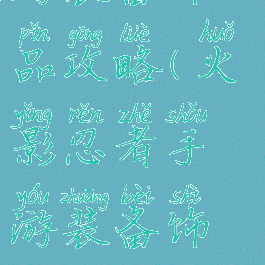 pǐn gōng lüè huǒ
品攻略(火
yǐng rěn zhě shǒu
影忍者手
yóu zhuāng bèi shì
游装备饰